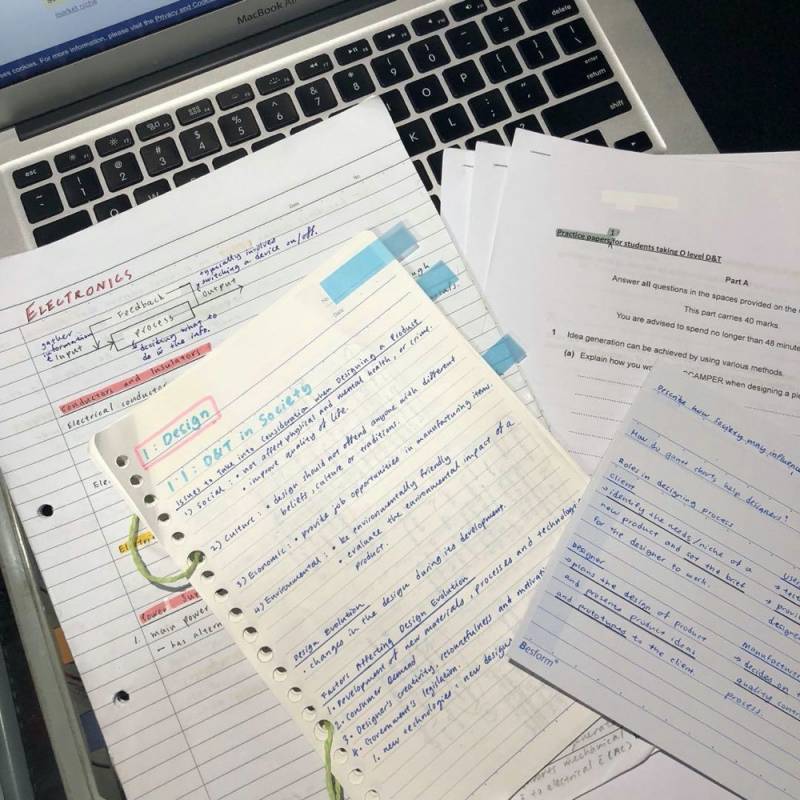 market niche
For more information, please visit the Privacy and Cookies
MacBook Air
esc
delete
enter
return
shift
ELECTRONICS
Feedback
typically involves
switching a device on/off.
gather
information
Input
Process
Output
deciding what to
do w the info.
Conductors and Insulators
Electrical conductor
Ele.
Power Su
1. main power
- has altern
No.
Date
1: Design
1.1: D&T in Society
Issues to take into consideration when designing a product
1) Social: • not affect physical and mental health, or crime.
• improve quality of life.
2) Culture: • design should not offend anyone with different
beliefs, culture or traditions.
3) Economic: • provide job opportunities in manufacturing items.
4) Environmental: • be environmentally friendly
• evaluate the environmental impact of a
product.
Design Evolution
• changes in the design during its development.
Factors Affecting Design Evolution
1. Development of new materials, processes and technolog
2. Consumer Demand
3. Designer's creativity, resourcefulness and motivati
4. Government's legislation.
1. new technologies, new designs
Practice paper 1 for students taking O level D&T
Part A
Answer all questions in the spaces provided on the
This part carries 40 marks.
You are advised to spend no longer than 48 minute
1 Idea generation can be achieved by using various methods.
(a) Explain how you wo SCAMPER when designing a pie
Describe how society may influenc
How do gantt charts help designers?
Roles in designing process
client
→ identify the needs/niche of a
new product and set the brief
for the designer to work.
Designer
→ plans the design of product
and presents product ideas
and prototypes to the client.
user
→ provi
designe
Manufacturer
→ decides on
quality contr
process.
Besform
mechanical
to electrical E (AC)